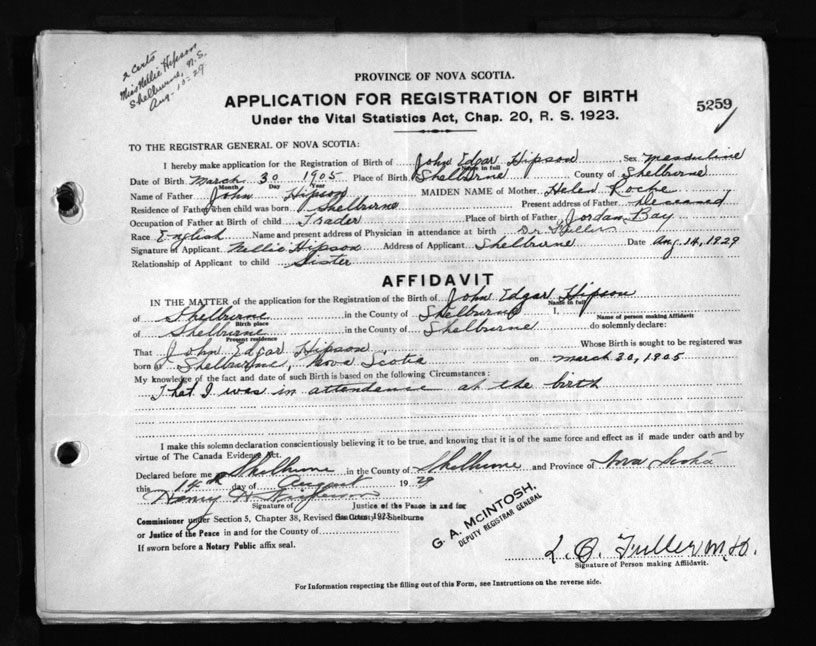 2 Certs
Miss Nellie Hipson
Shelburne, N.S.
Aug-10-29
PROVINCE OF NOVA SCOTIA.
APPLICATION FOR REGISTRATION OF BIRTH
Under the Vital Statistics Act, Chap. 20, R. S. 1923.
5259
TO THE REGISTRAR GENERAL OF NOVA SCOTIA:
I hereby make application for the Registration of Birth of John Edgar Hipson Sex Masculine
Name in full
Date of Birth March 30 1905 Place of Birth Shelburne County of Shelburne
Month Day Year
Name of Father John Hipson MAIDEN NAME of Mother Helen Roche
Residence of Father when child was born Shelburne Present address of Father Deceased
Occupation of Father at Birth of child Trader Place of birth of Father Jordan Bay
Race English Name and present address of Physician in attendance at birth Dr Fuller
Signature of Applicant Nellie Hipson Address of Applicant Shelburne Date Aug. 14, 1929
Relationship of Applicant to child Sister
AFFIDAVIT
IN THE MATTER of the application for the Registration of the Birth of John Edgar Hipson
Name in full
of Shelburne in the County of Shelburne I,
Birth place Name of person making Affidavit
of Shelburne in the County of Shelburne do solemnly declare:
Present residence
That John Edgar Hipson, Whose Birth is sought to be registered was
born at Shelburne, Nova Scotia on March 30, 1905
My knowledge of the fact and date of such Birth is based on the following Circumstances:
That I was in attendance at the birth
I make this solemn declaration conscientiously believing it to be true, and knowing that it is of the same force and effect as if made under oath and by
virtue of The Canada Evidence Act.
Declared before me at Shelburne in the County of Shelburne and Province of Nova Scotia
this 14th day of August 1929
Henry H
Signature of Justice of the Peace in and for
Commissioner under Section 5, Chapter 38, Revised Statutes, 1923 the County of Shelburne
or Justice of the Peace in and for the County of
If sworn before a Notary Public affix seal.
G. A. McINTOSH,
DEPUTY REGISTRAR GENERAL
L. O. Fuller M.D.
Signature of Person making Affidavit.
For Information respecting the filling out of this Form, see Instructions on the reverse side.